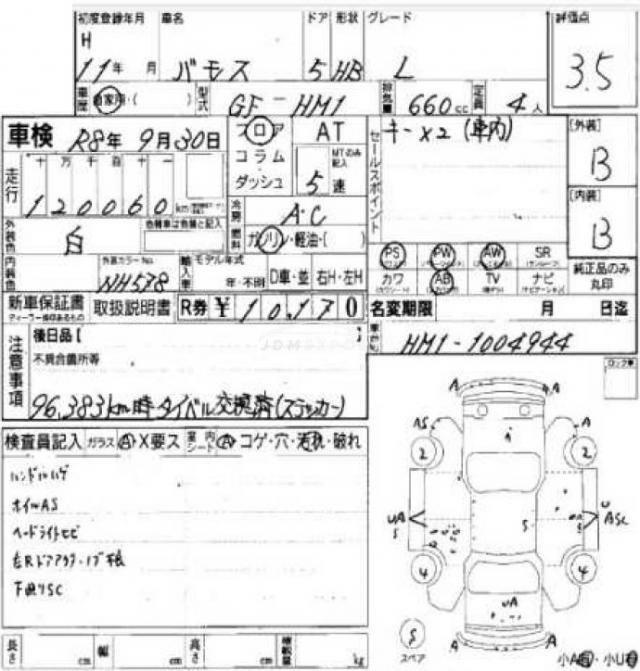 初度登録年月 車名 ドア 形状 グレード 評価点
H 11年 月 バモス 5 HB L 3.5
車歴 自家用・( ) 型式 GF-HM1 排気量 660cc 定員 4人
車検 R8年 9月30日 フロア コラム・ダッシュ AT MTのみ記入 5速
セールスポイント キーX2(車内)
[外装] B
走行 十万千百十一 120060km
[内装] B
冷房 A・C
外装色 白 色替車は色替と記入 燃料 ガソリン・軽油・( )
PS PW AW SR
カワ AB TV ナビ
純正品のみ丸印
内装色 外装カラーNo. NH578 輸入車 モデル年式 年・不明 D車・並 右H・左H
新車保証書 取扱説明書 R券 ¥10,170
ディーラー捺印あるもの
名変期限 月 日迄
注意事項 後日品[ ]
車台No. HM1-1004944
不具合箇所等
96,383km時タイベル交換済(ステッカー)
検査員記入 ガラス A・X要ス 室内シート A・コゲ・穴・汚れ・破れ
ハンドルハゲ
ホイルAS
ヘッドライトヒビ
下廻りSC
ロック車
A A
AS A
2 2
UA S S U ASC
4 4
UA
A A
S スペア
小A・小U
長さ cm 幅 cm 高さ cm 積載量 kg